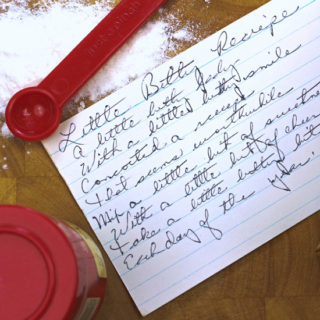 Little Bitty Recipe
A little bitty lady
With a little bitty smile
Concocted a recipe
That seems worthwhile
Mix a little bit of sweetness
With a little bit of cheer
Take a little bitty bit
Each day of the year!